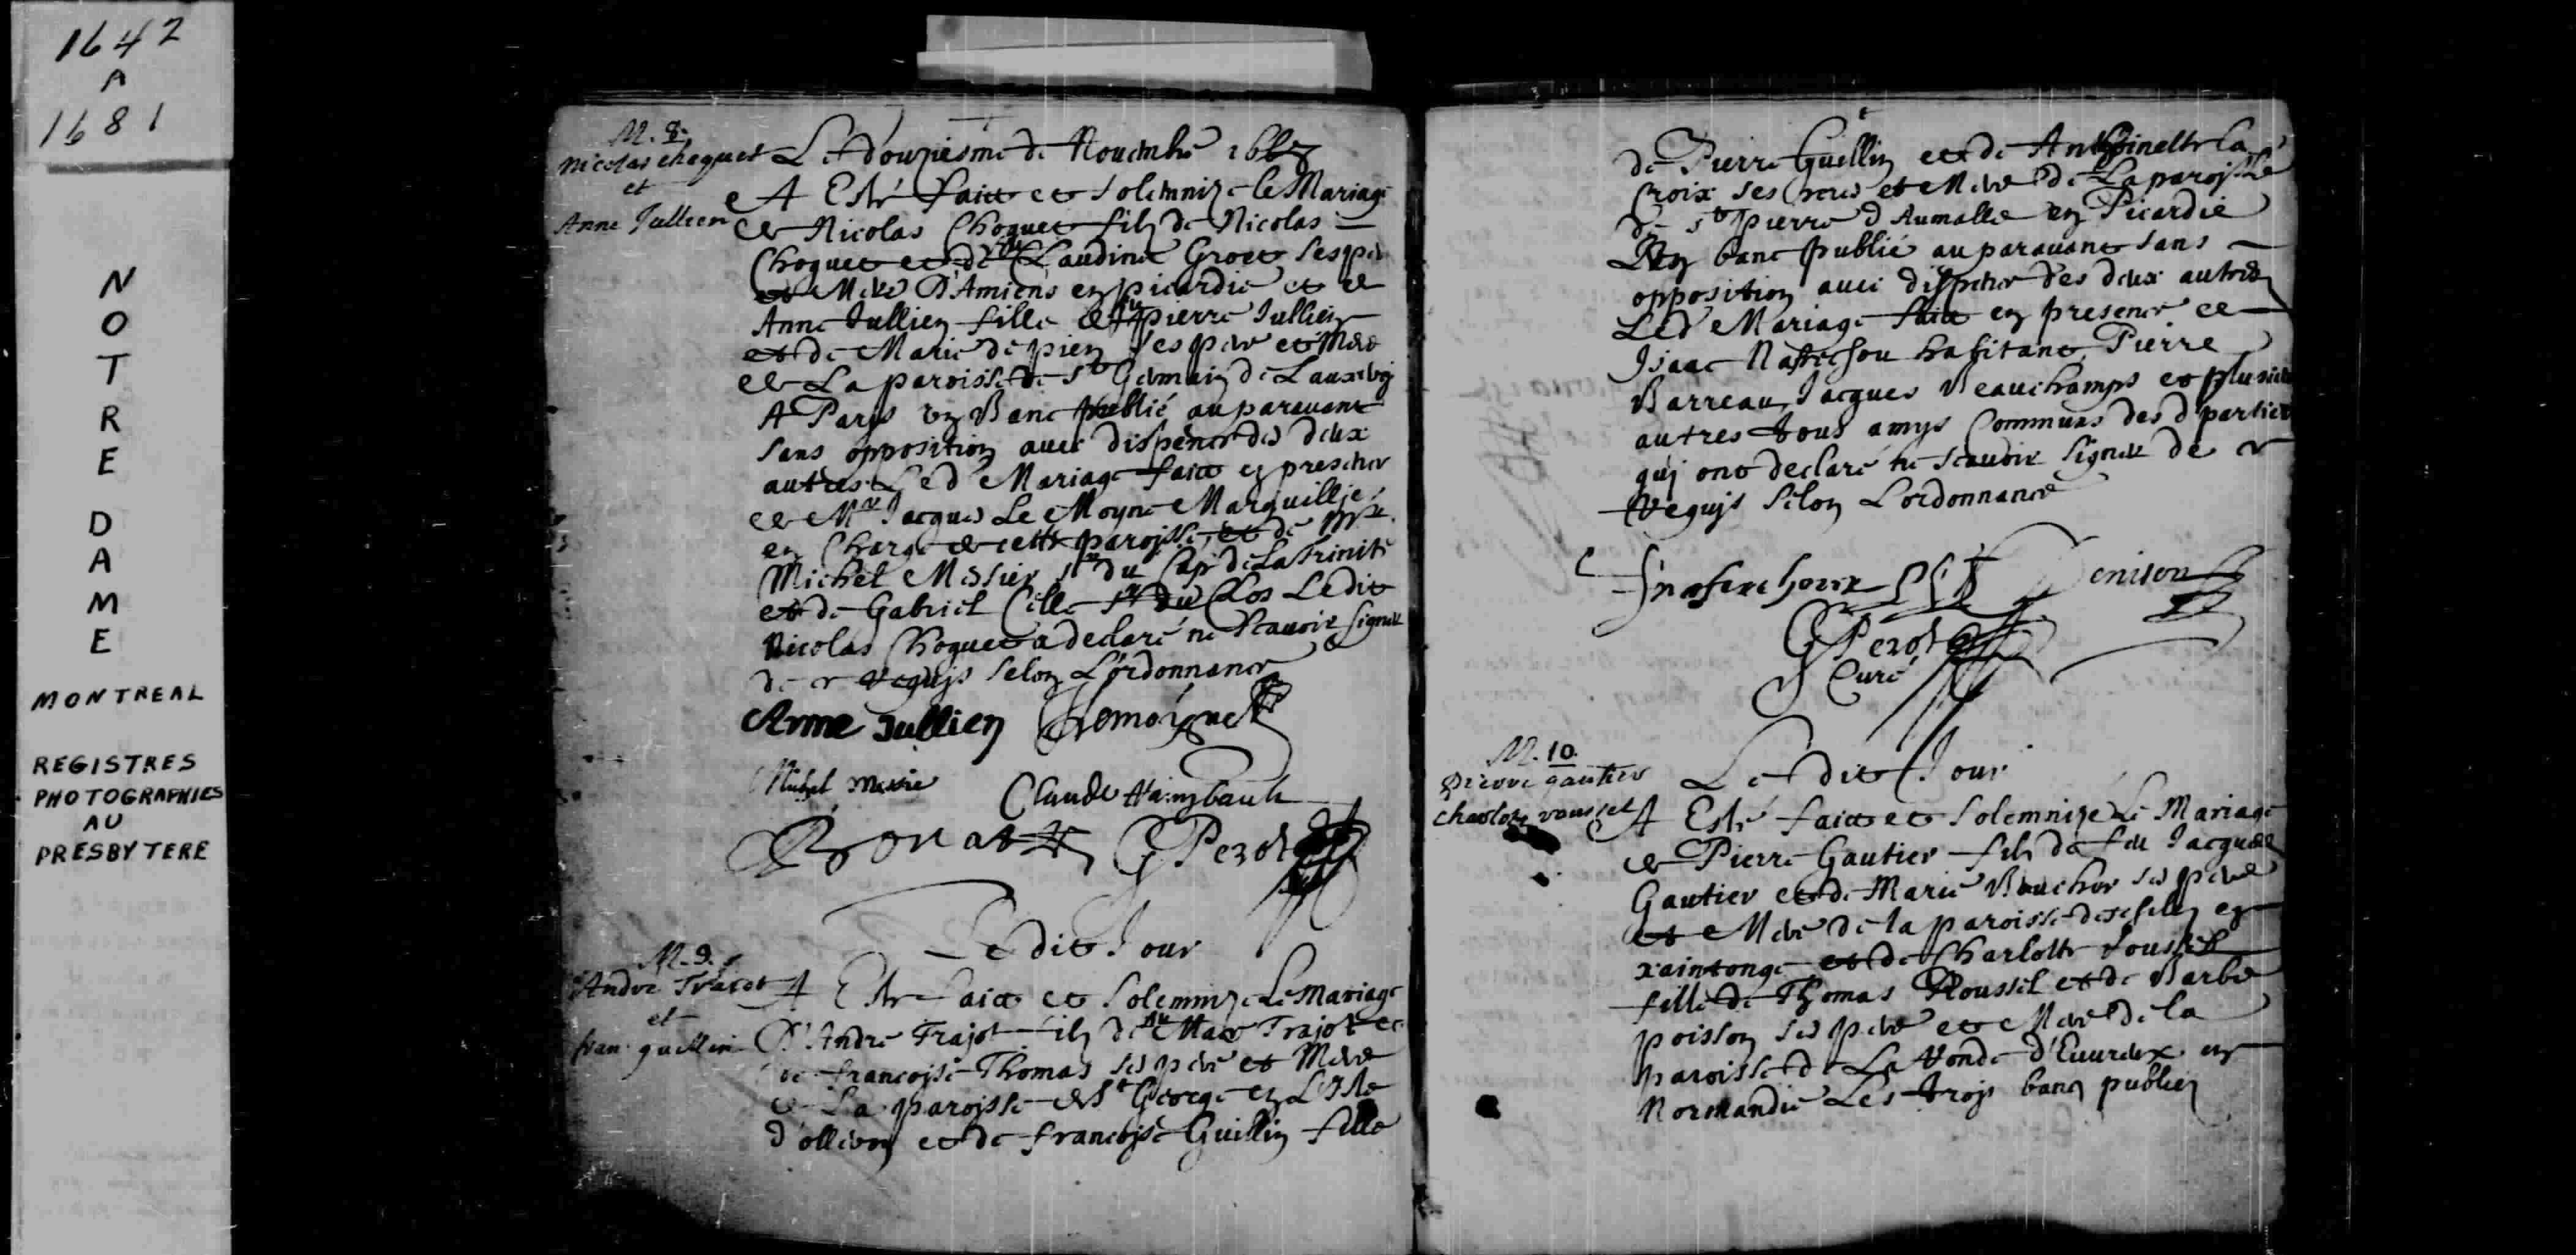 1642
A
1681
NOTRE DAME
MONTREAL
REGISTRES
PHOTOGRAPHIES
AU
PRESBYTERE
M. 8.
Nicolas choquet
et
Anne Jullien
Le douziesme de Nouembre
A Esté faict et solemnize le Mariage
de Nicolas Choquet fils de Nicolas
Choquet et de Claudine Groet ses pere
et Mere D'Amiens en picardie et de
Anne Jullien fille de feu pierre Jullien
et de Marie depien ses pere et Mere
de La paroisse de St Germain de
A Paris un Banc publié auparauant
sans opposition auec dispence des deux
autres Led Mariage faict en presence
de Mre Jacques Le Moyne Marguillier
en Charge de cette paroisse, et de
Michel Messier sr du Cap de La Trinité
et de Gabriel Celle sr du Clos Ledit
Nicolas Choquet a declaré ne scauoir signer
de ce requis selon L'ordonnance
Anne Jullien Lemoyne
Michel Messie Claude
G Perot
M. 9.
Andre Trajot
et
fran. guillin
Ledit Jour
A Esté faict et Solemnize Le Mariage
D'André Trajot fils de feu Trajot et
de francoise Thomas ses pere et Mere
de La paroisse de St George en L'Isle
d'olleron et de francoise Guillin fille
de Pierre Guillin et de Anthoinette la
Croix ses peres et Mere de La paroisse
de St pierre d'Aumalle en Picardie
Un banc publié auparauant sans
opposition auec dispence des deux autres
Led Mariage faict en presence de
Isaac Nafrechou habitant, Pierre
Barreau, Jacques Beauchamps et plusieurs
autres tous amys Communs des d parties
qui ont declaré ne scauoir signer de ce
requis selon L'ordonnance
G Perot
Curé
M. 10.
pierre gautier
charlote roussel
Ledit Jour
A Esté faict et Solemnizé Le Mariage
de Pierre Gautier fils de feu Jacques
Gautier et de Marie Boucher ses pere
et Mere de la paroisse en
xaintonge et de Charlotte Roussel
fille de Thomas Roussel et de Barbe
poisson ses pere et Mere de la
paroisse de La Ronde d'Eureux en
Normandie Les trois bancs publiez